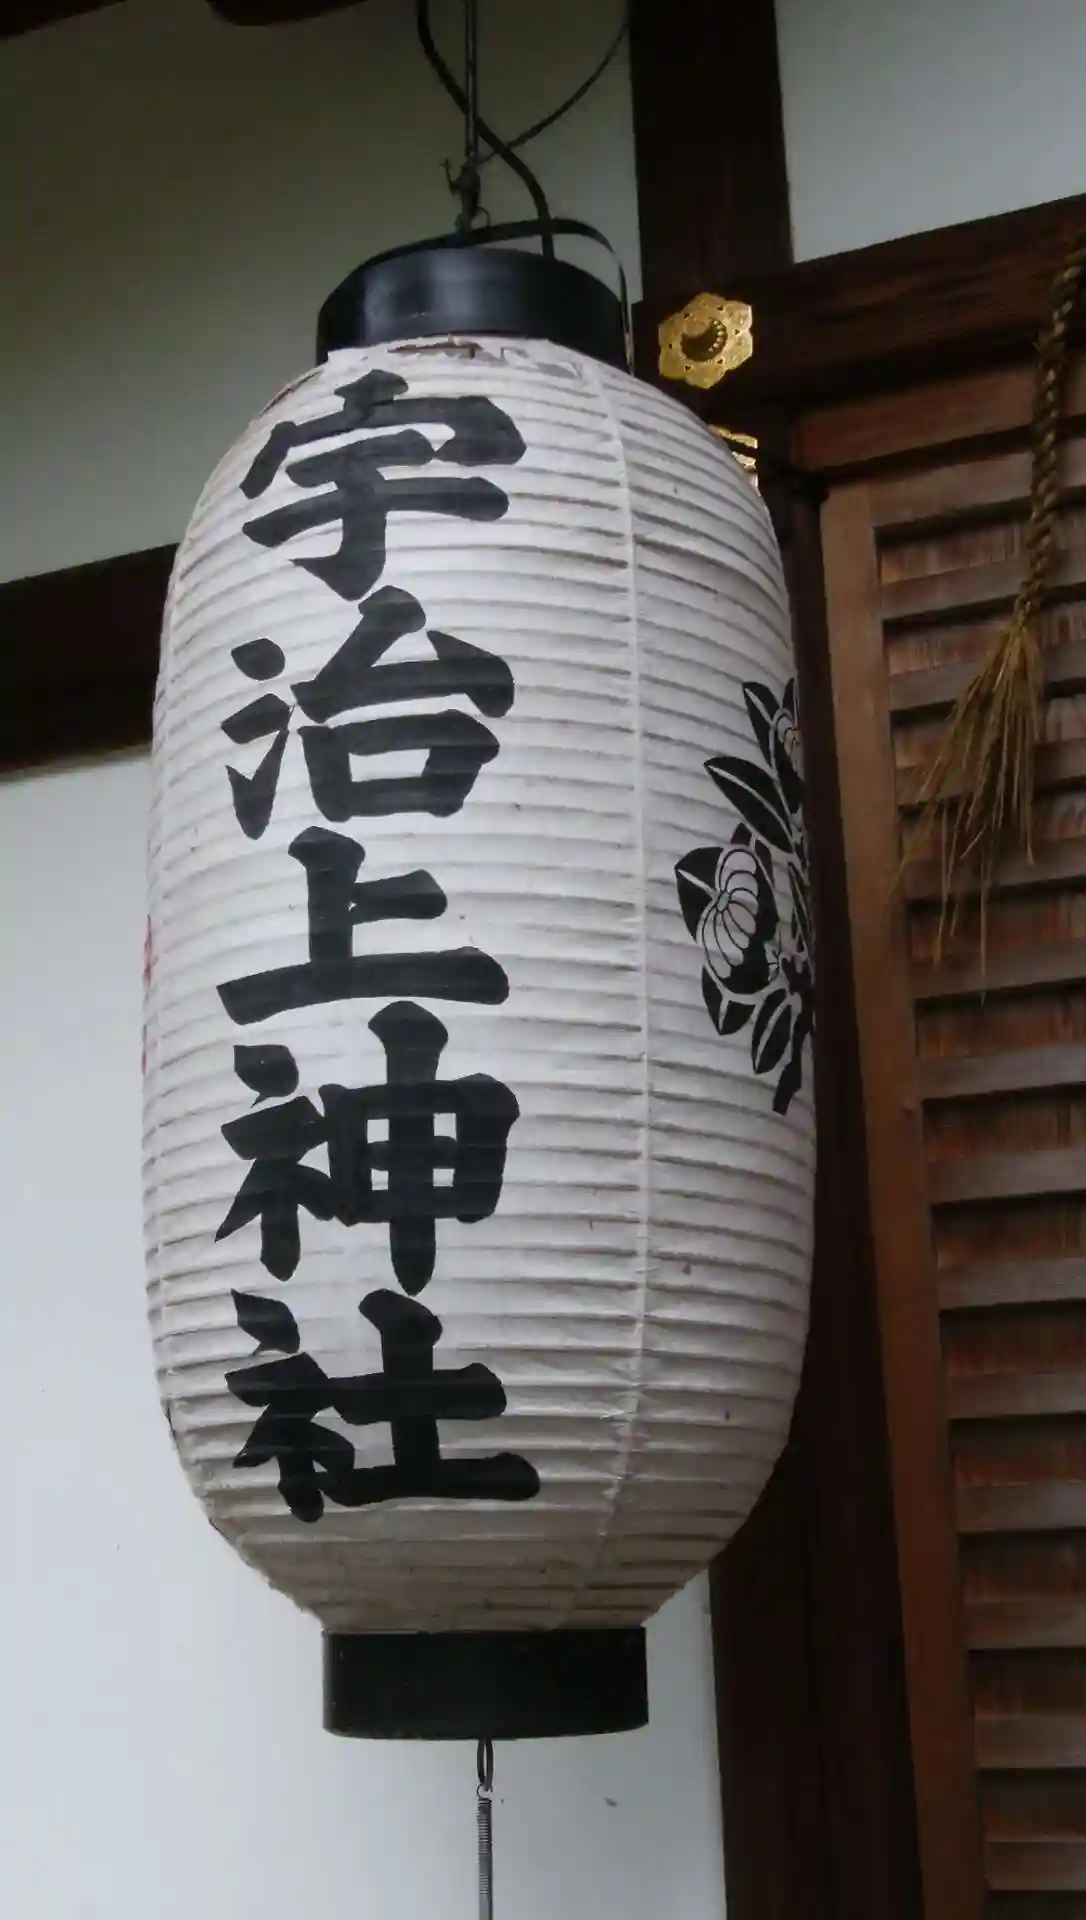 宇治上神社